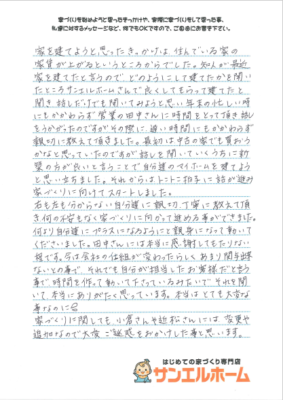 家づくりを始めようと思ったきっかけや、実際に家づくりをして思った事、
私達に対するメッセージなど、何でもOKですので、ご自由にお書き下さい。
家を建てようと思ったきっかけは 住んでいる家の
家賃が上がるというところからでした。知人が最近
家を建てたと言うので どのようにして建てたかを聞い
たところサンエルホームさんで良くしてもらって建てたと
聞き 話しだけでも聞いてみようと思い 年末の忙しい時
にもかかわらず 営業の田中さんに時間をとって頂き話し
をうかがったのですがその際に 遅い時間にもかかわらず
親切に教えて頂きました。最初は中古の家でも買おう
かなと思っていたのですが話しを聞いていくうちに新
築の方が良いと言うことで 自分達のマイホームを建てよう
と思い立ちました。それからはトントン拍子に話が進み
家づくりに向けてスタートしました。
右も左も分からない自分達に親切、丁寧に教えて頂
き何の不安もなく家づくりに向かって進める事ができました。
何より自分達にプラスになるようにと親身になって動いて
くださいました。田中さんには本当に感謝してもたりない
程です。今は会社の仕組が変わったらしく あまり間を出来
ないとの事で、それでも自分が担当したお客様だと言う
事で時間を作って動いて下さっているみたいで それを聞
いて、本当にありがたく思っています。本当はとても大変な
事なのに
家づくりに関しても 小倉さんや 松さんには 変更や
追加などで大変 ご迷惑をおかけした事と思います。
はじめての家づくり専門店
サンエルホーム